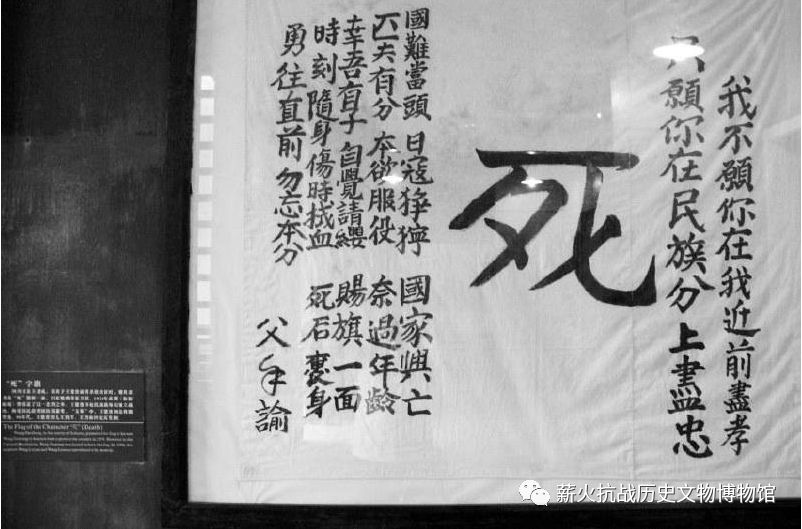 我不願你在我近前盡孝
只願你在民族分上盡忠
死
國難當頭 日寇猙獰 國家興亡
匹夫有分 本欲服役 奈過年齡
幸吾有子 自覺請纓 賜旗一面
時刻隨身 傷時拭血 死后裹身
勇往直前 勿忘本分
父手諭
“死”字旗
The Flag of the Character “死” (Death)
薪火抗战历史文物博物馆